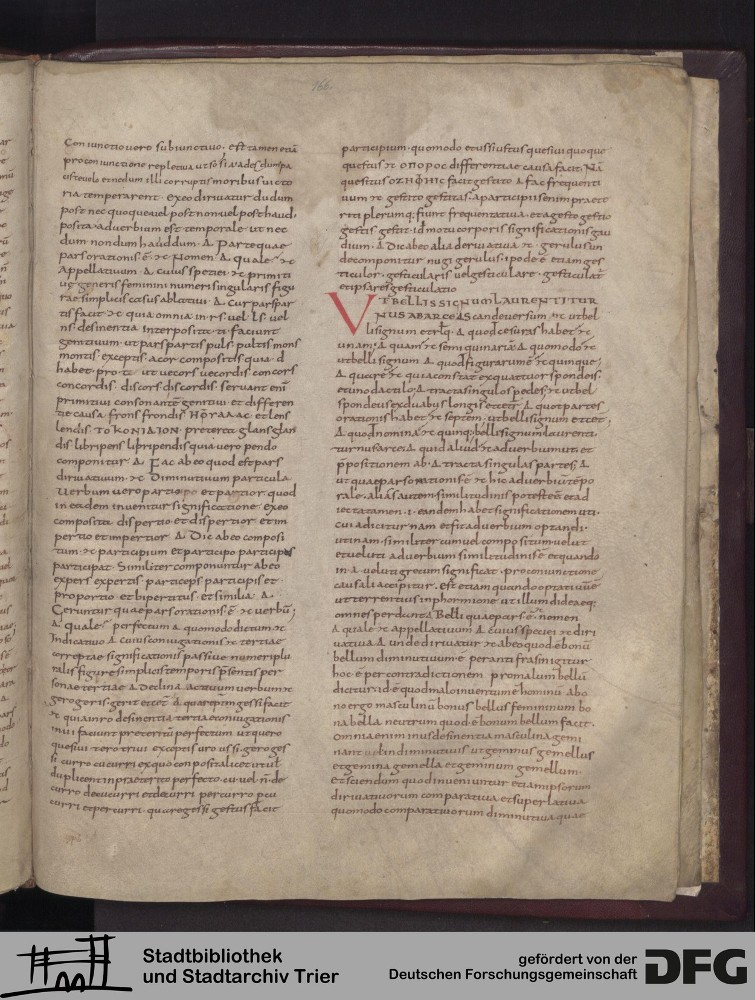 166
Coniunctio vero subiunctivo est tamen etiā
pro coniunctione repletiva ut
moribus victo
ria temperarent ex eo dirivatur dudum
post nec quoque vel post non vel post haud
posita adverbium est temporale ut nec
dum nondum hauddum Δ Pars equae
pars orationis ē Nomen Δ quale
Appellativum Δ cuius speciei primiti
vę generis feminini numeri singularis figu
rae simplicis casus ablativi Δ Cur pars par
tis facit quia omnia in rs vel ls vel
ns desinentia interposita ti faciunt
gentivum ut pars partis puls pultis mons
montis exceptis a cor compositis quia d
habet pro te ut vecors vecordis concors
concordis discors discordis servant enī
primitivi consonantē genitivi et differen
tie causa frons frondis et lens
lendis preterea glans glan
dis libripens libripendis quia vero pendo
componitur Δ Fac ab eo quod est pars
dirivativum Diminutivum particula
Verbum vero et partior quod
in eadem invenitur significatione ex eo
composita dispertio et dispertior et im
pertio et impertior Δ Dic ab eo composi
tum participium et participo participas
participat Similiter componuntur ab eo
expers expertis particeps participis et
proportio et bipertitus et similia Δ
Geruntur quae pars orationis ē verbū
Δ quale perfectum Δ quomodo dictum
Indicativo Δ cuius coniugationis tertiae
correptae significationis passivae numeri plu
ralis figure simplicis temporis p̄sentis per
sonae tertiae Δ Declina activum verbum
gero geris gerit Δ quare p̄tm gessi facit
quia in ro desinentia tertiae coniugationis
in vi faciunt preteritū perfectum ut quero
quesivi tero trivi exceptis uro ussi gero ges
si curro cucurri ex quo composita licet
duplicent in praeterito perfecto
curro decucurri et decurri percurro
curri et percurri quare gessi gestus facit
participium quomodo et ussi ustus quesivi quoque
questus differentiae causa facit Nā
quesitus facit gestito Δ fac frequenti
vum gestito gestitas A participiis enim praet
eriti plerumq; fiunt frequentativa et a gesto gestio
gestis gestit id motu corporis significationis gau
dium Δ Dic ab eo alia derivativa gerulus un
de componitur nugigerulus ipod ē etiam ges
ticulor gesticularis vel gesticulare gesticulat
et ipsa res gesticulatio
VT BELLI SIGNUM LAURENTI TUR
NUS AB ARCE Δ Scande versum ut bel
li signum et rlq Δ quod cesuras habet
unam Δ quam semiquinariā Δ quomodo
ut belli signum Δ quod figurarum ē quinque
Δ quare quia constat ex quatuor spondeis
et uno dactilo Δ tracta singulos pedes ut bel
spondeus ex duabus longis Δ quot partes
orationis habet septem ut belli signum
Δ quod nomina quinq; belli signum laurenti
turnus arce Δ quid aliud adverbium ut et
p̄positionem ab Δ tracta singulas partes Δ
ut quae pars orationis ē hic adverbiū tēpo
rale alias autem similitudinis potest esse et ad
iectatamen i eandem habet significationem uti
cui adicitur nam et fit adverbium optandi
utinam similiter cum vel compositum velut
et veluti adverbium similitudinis ē et quando
in a volunt grecum significat pro coniunctione
causali accipitur Est etiam quando optativū ē
ut terrentius in phormione ut illum di deaeq;
omnes perdunt Δ Belli quae pars ē nomen
Δ quale appellativum Δ cuius speciei diri
vativa Δ unde dirivatur ab eo quod ē bonū
bellum diminutivum ē per antifrasin igitur
hoc ē per contradictionem pro malum bellū
dicitur id ē quod malo invenitur ē hominū a bo
no ergo masculinū bonus bellus femininum bo
na bella neutrum quod ē bonum bellum facit
Omnia enim in us desinentia masculina gemi
nant in diminutivis ut geminus gemellus
et gemina gemella et geminum gemellum
Et sciendum quod inveniuntur etiam ipsorum
dirivativorum comparativa et superlativa
quomodo comparativorum diminutiva quae
Stadtbibliothek
und Stadtarchiv Trier
gefördert von der
Deutschen Forschungsgemeinschaft
DFG